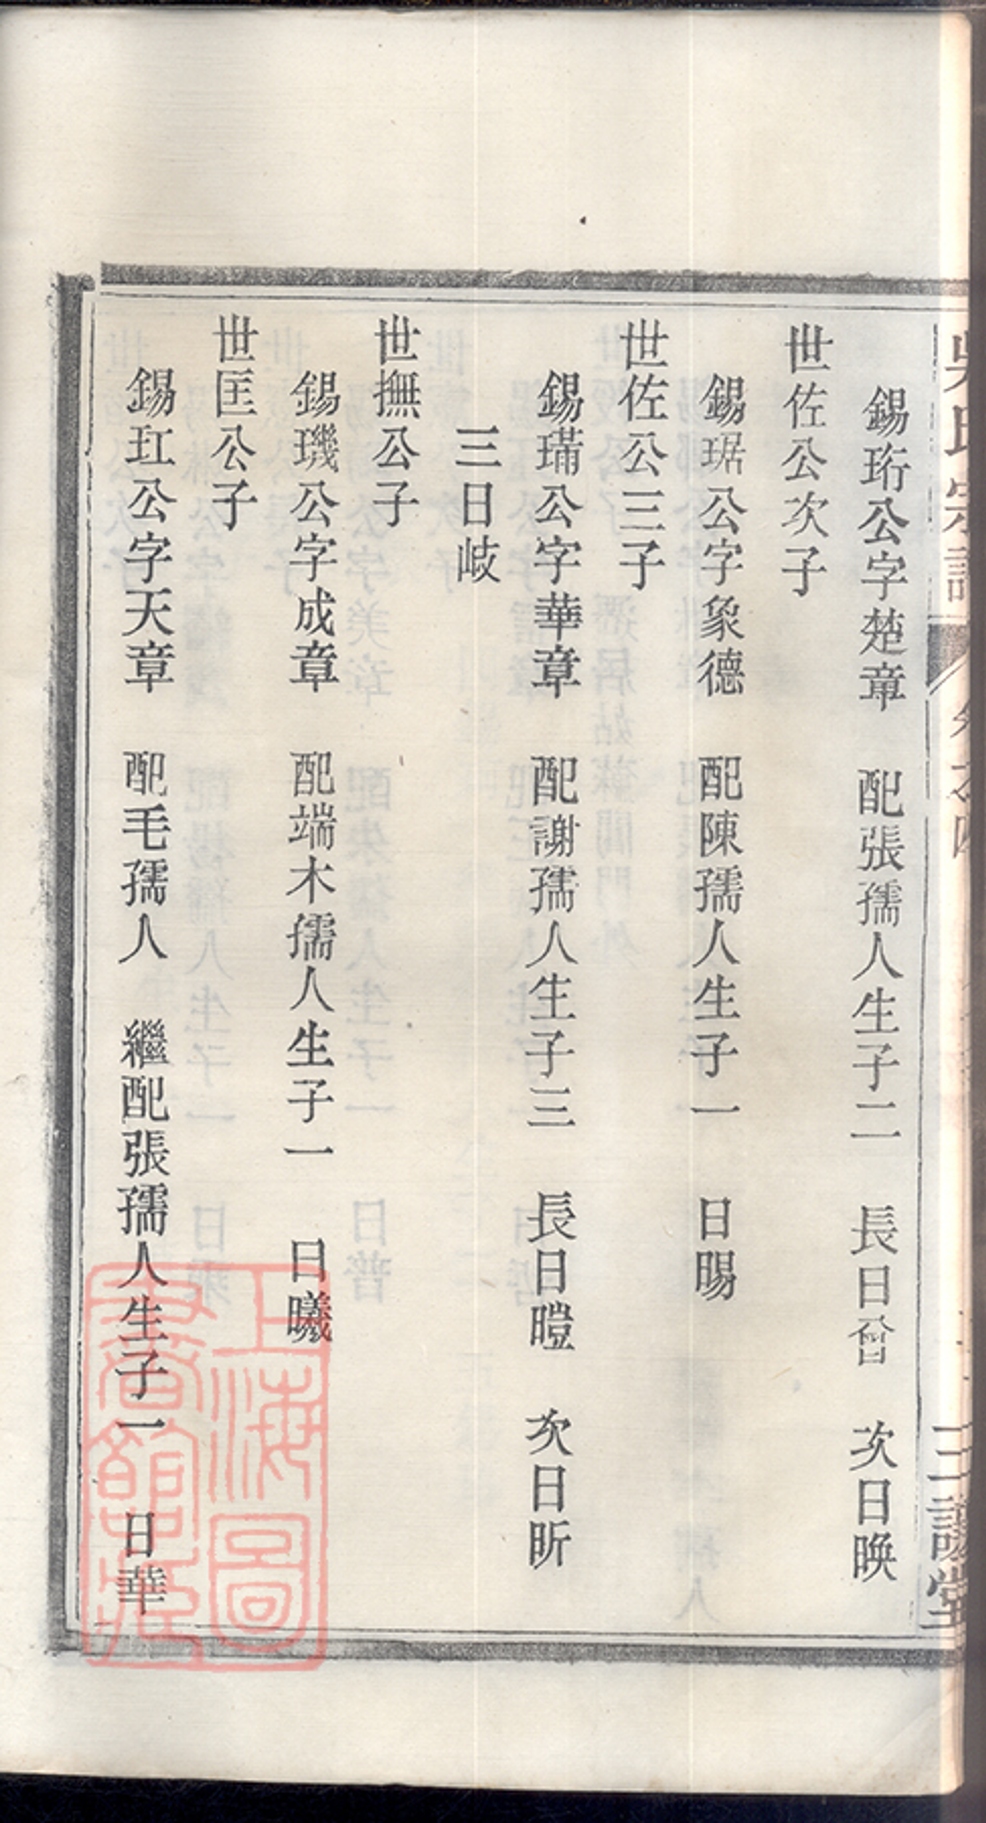 吳氏宗譜 卷之四 三讓堂
錫珩公字楚章 配張孺人生子二 長日曾 次日暎
世佐公次子
錫琚公字象德 配陳孺人生子一 日暘
世佐公三子
錫璊公字華章 配謝孺人生子三 長日暟 次日昕
三日歧
世撫公子
錫璣公字成章 配端木孺人生子一 日曦
世匡公子
錫玒公字天章 配毛孺人 繼配張孺人生子一 日華
上海圖書館藏